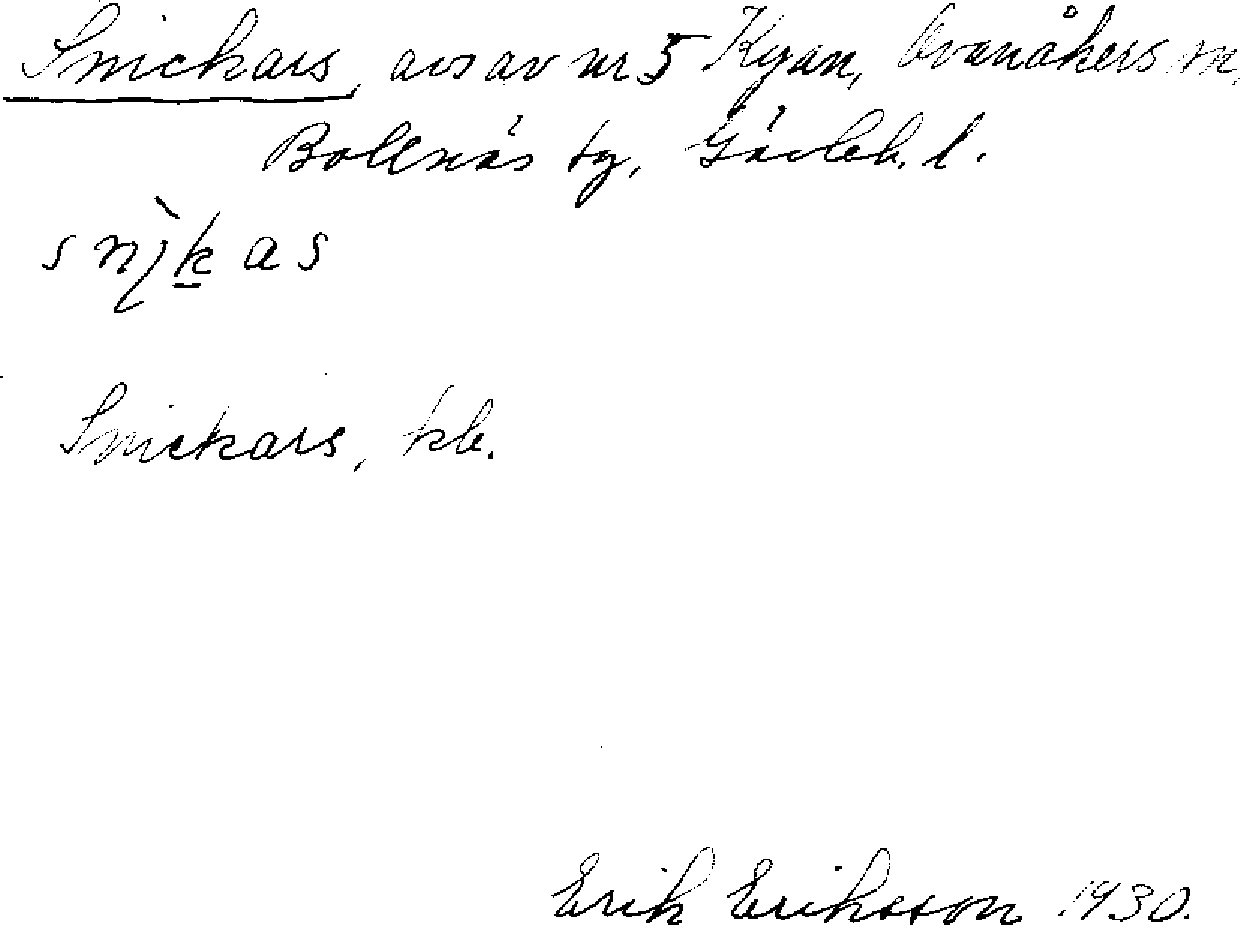 Snickars, avs av nr 5 Kyan, Ovanåkers sn,
Bollnäs tg, Gävleb. l.
snı̀kas
Snickars, kb.
Erik Eriksson 1930.